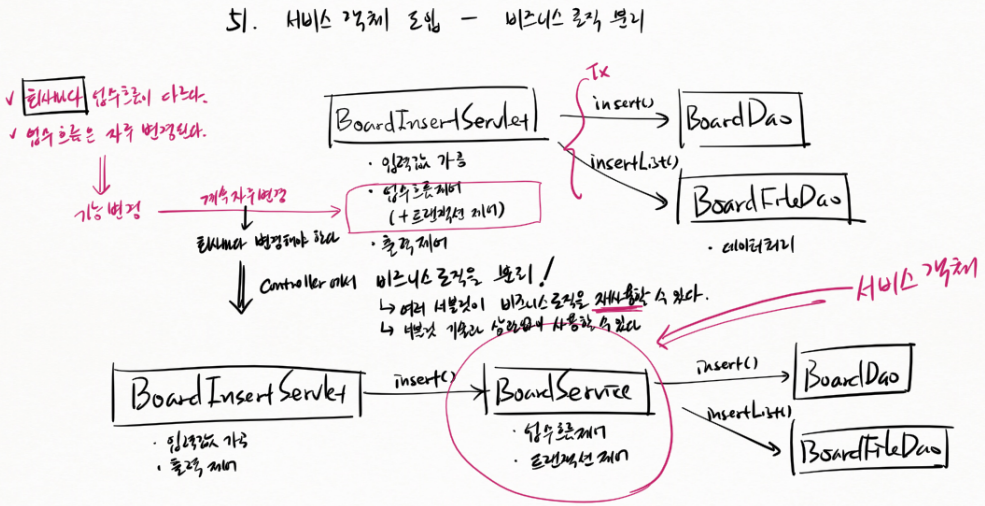 51. 서비스 객체 도입 - 비즈니스 로직 분리
✓ 회사마다 업무흐름이 다르다.
✓ 업무흐름은 자주 변경된다.
기능변경
계속 자주변경
회사마다 변경해야 한다
Tx
BoardInsertServlet
· 입력값 가공
· 업무흐름제어
(+트랜잭션 제어)
· 출력제어
insert()
BoardDao
insertList()
BoardFileDao
· 데이터처리
Controller에서 비즈니스 로직을 분리!
↳ 여러 서블릿이 비즈니스 로직을 재사용할 수 있다.
↳ 서블릿 기술과 상관없이 사용할 수 있다
서비스 객체
BoardInsertServlet
· 입력값 가공
· 출력 제어
insert()
BoardService
· 업무흐름제어
· 트랜잭션 제어
insert()
BoardDao
insertList()
BoardFileDao